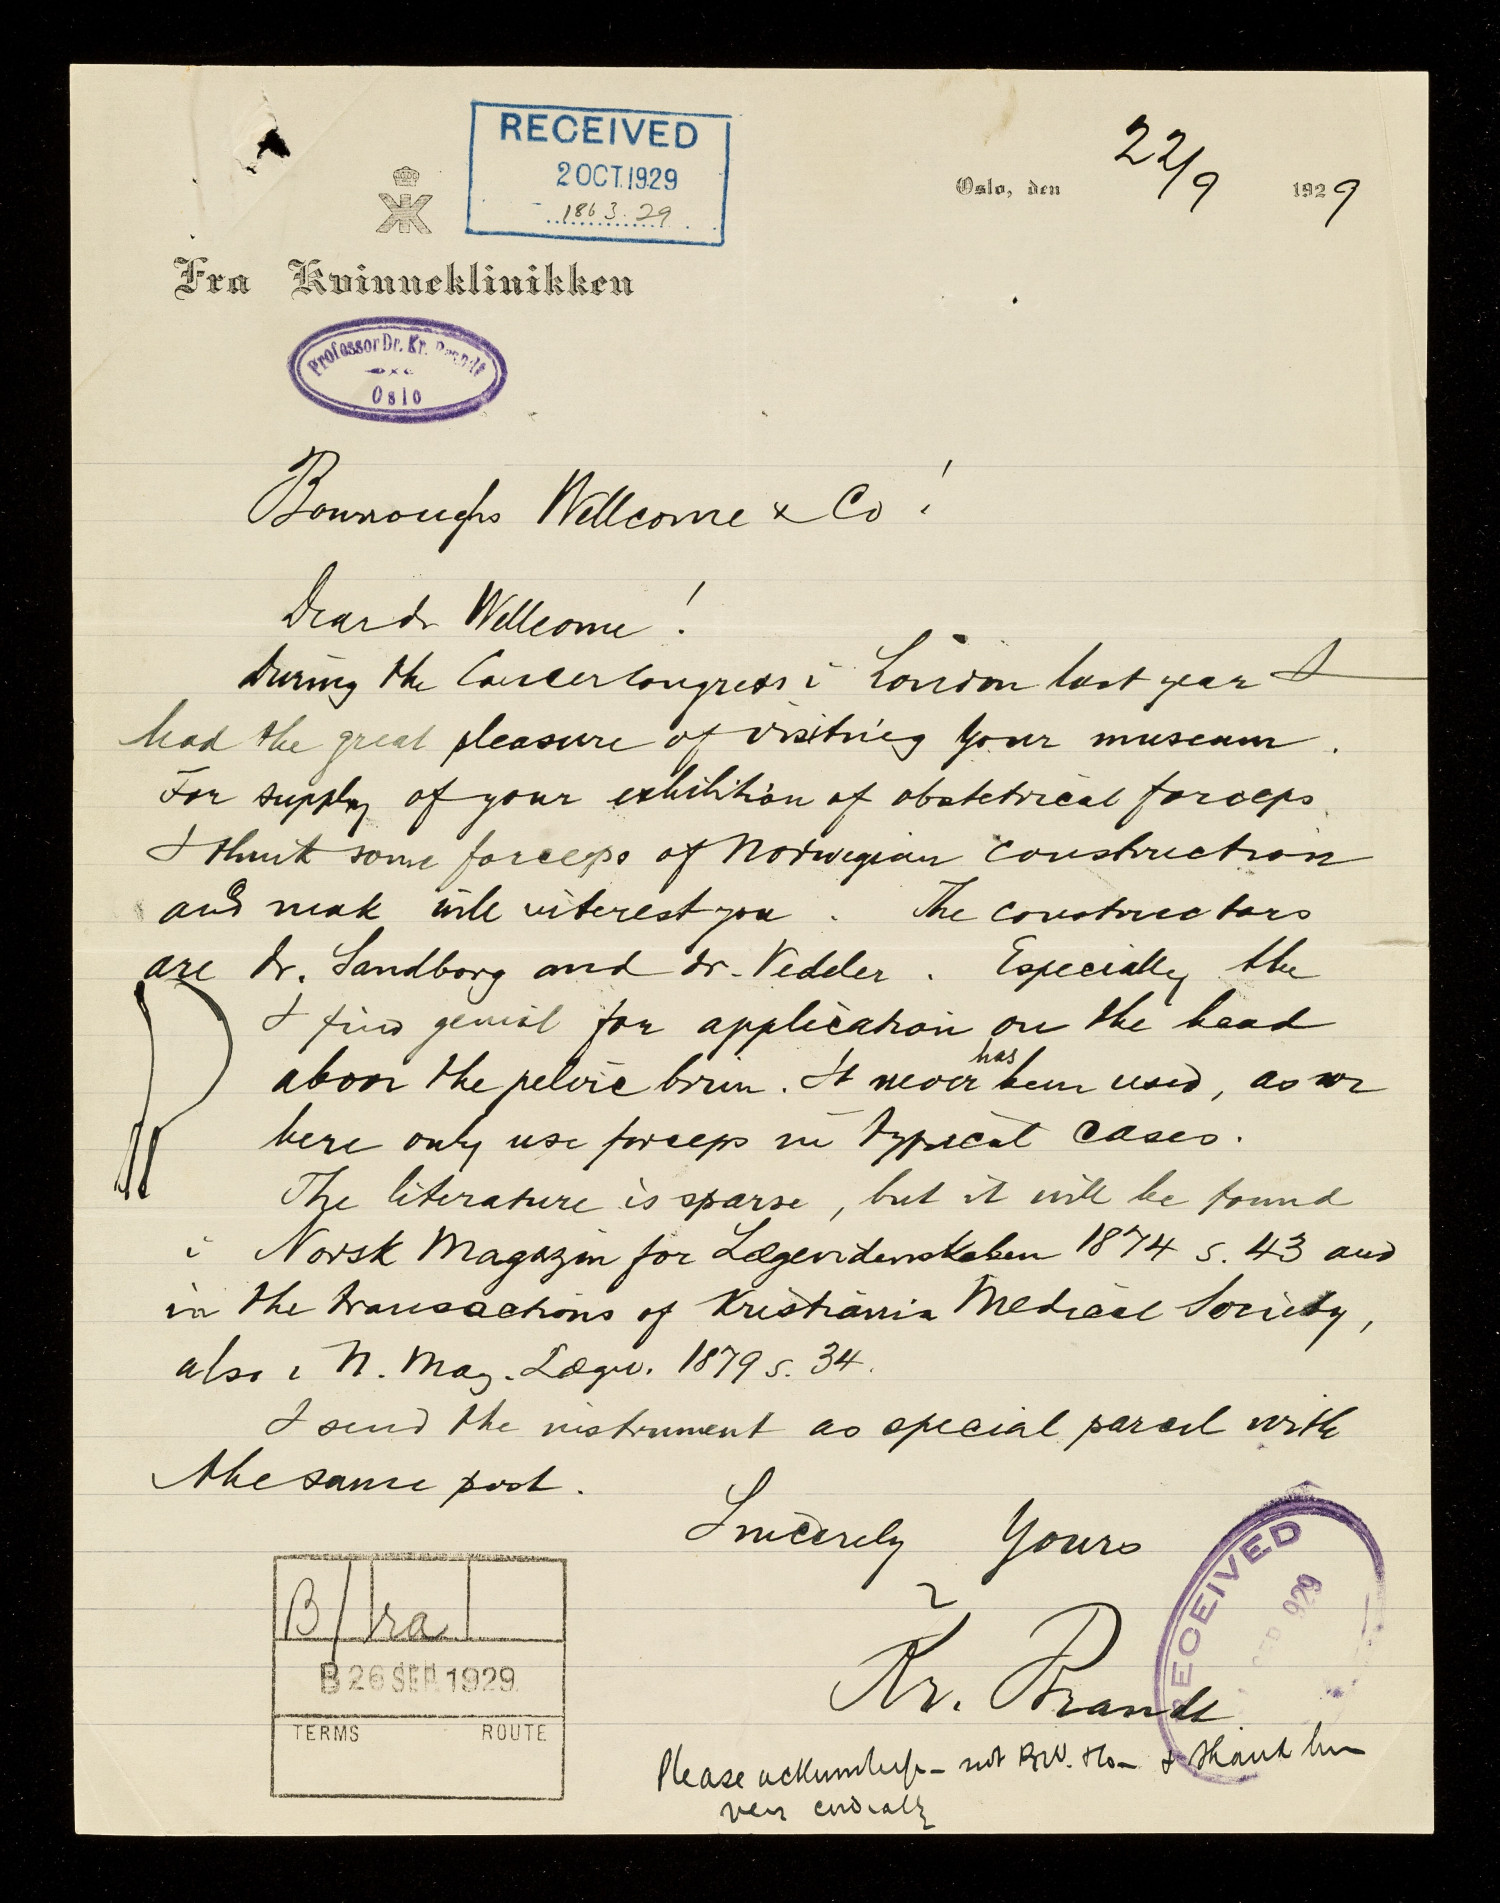 RECEIVED
2 OCT. 1929
1863.29
Oslo, den 22/9 1929
Fra Kvinneklinikken
Professor Dr. Kr. Brandt
Oslo
Bourroughs Wellcome & Co!
Dear dr Wellcome!
During the Cancercongress i London last year I
had the great pleasure of visiting Your museum.
For supply of your exhibition of obstetrical forceps
I think some forceps of Norwegian construction
and mak will interest you. The constructors
are Dr. Sandborg and dr. Vedeler. Especially the
I find genial for application on the head
abov the pelvic brim. It never has been used, as we
here only use forceps in typical cases.
The literature is sparse, but it will be found
i Norsk Magazin for Lægevidenskaben 1874 s. 43 and
in the transactions of Kristiania Medical Society,
also i N. Mag. Lægev. 1879 s. 34.
I send the instrument as special parcel with
the same post.
Sincerely Yours
Kr. Brandt
B/ra
B 26 SEP. 1929
TERMS ROUTE
RECEIVED
SEP 929
Please acknowledge - not B.W. & Co - & thank him
very cordially